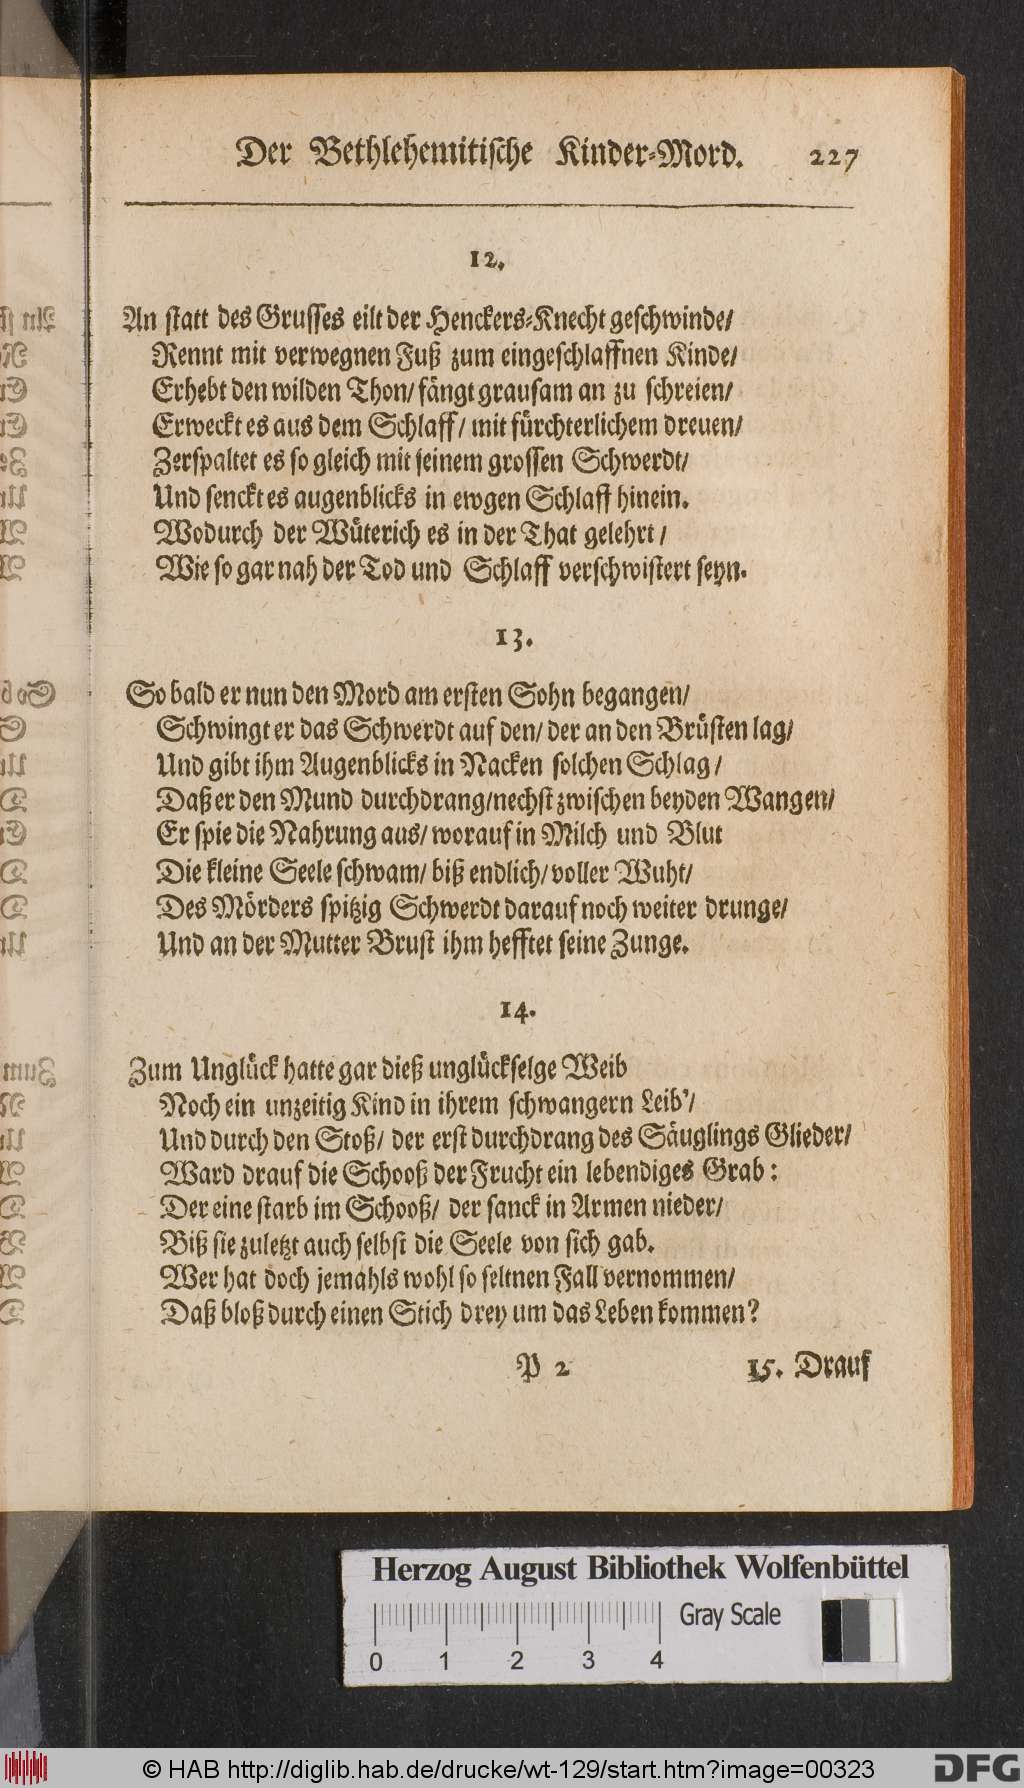 Der Bethlehemitische Kinder-Mord. 227
12.
An statt des Grusses eilt der Henckers-Knecht geschwinde/
Rennt mit verwegnen Fuß zum eingeschlaffnen Kinde/
Erhebt den wilden Thon/ fängt grausam an zu schreien/
Erweckt es aus dem Schlaff/ mit fürchterlichem dreuen/
Zerspaltet es so gleich mit seinem grossen Schwerdt/
Und senckt es augenblicks in ewgen Schlaff hinein.
Wodurch der Wüterich es in der That gelehrt/
Wie so gar nah der Tod und Schlaff verschwistert seyn.
13.
So bald er nun den Mord am ersten Sohn begangen/
Schwingt er das Schwerdt auf den/ der an den Brüsten lag/
Und gibt ihm Augenblicks in Nacken solchen Schlag/
Daß er den Mund durchdrang/ nechst zwischen beyden Wangen/
Er spie die Nahrung aus/ worauf in Milch und Blut
Die kleine Seele schwam/ biß endlich/ voller Wuht/
Des Mörders spitzig Schwerdt darauf noch weiter drunge/
Und an der Mutter Brust ihm hefftet seine Zunge.
14.
Zum Unglück hatte gar dieß unglückselge Weib
Noch ein unzeitig Kind in ihrem schwangern Leib'/
Und durch den Stoß/ der erst durchdrang des Säuglings Glieder/
Ward drauf die Schooß der Frucht ein lebendiges Grab:
Der eine starb im Schooß/ der sanck in Armen nieder/
Biß sie zuletzt auch selbst die Seele von sich gab.
Wer hat doch jemahls wohl so seltnen Fall vernommen/
Daß bloß durch einen Stich drey um das Leben kommen?
P 2 15. Drauf
Herzog August Bibliothek Wolfenbüttel
Gray Scale
0 1 2 3 4
© HAB http://diglib.hab.de/drucke/wt-129/start.htm?image=00323
DFG